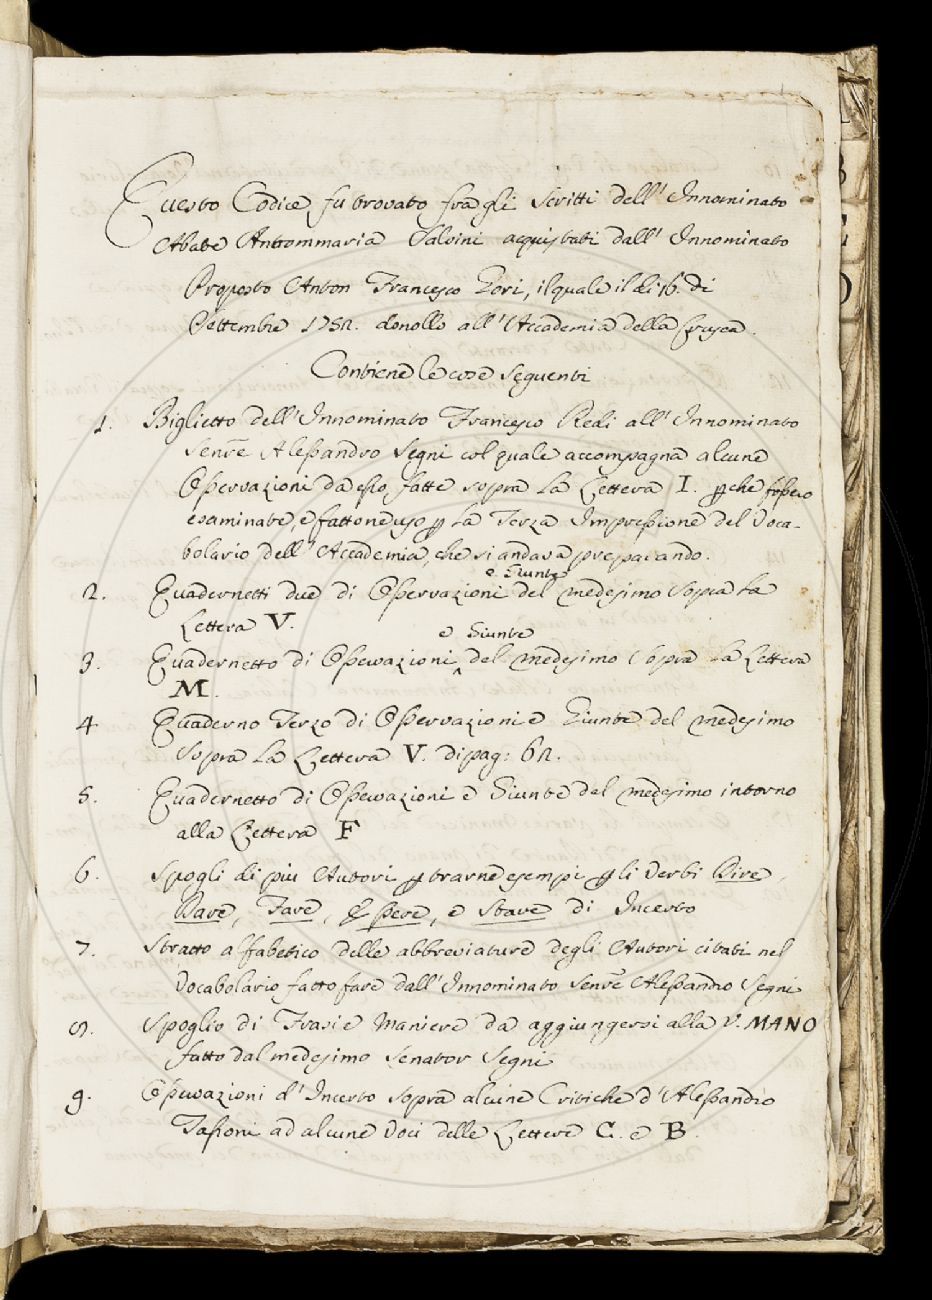 Questo Codice fu trovato fra gli Scritti dell' Innominato
Abate Antommaria Salvini acquistati dall' Innominato
Proposto Anton Francesco Gori, il quale il dì 16. di
Settembre 1752. donollo all' Accademia della Crusca.
Contiene le cose seguenti
1. Biglietto dell' Innominato Francesco Redi all' Innominato
Senre Alessandro Segni col quale accompagna alcune
Osservazioni da esso fatte sopra la Lettera I. p che fossero
esaminate, e fattone uso p la Terza Impressione del Voca-
bolario dell' Accademia, che si andava preparando.
e Giunte
2. Quadernetti due di Osservazioni del medesimo sopra la
Lettera V.
e Giunte
3. Quadernetto di Osservazioni ^ del medesimo sopra la Lettera
M.
4. Quaderno Terzo di Osservazioni e Giunte del medesimo
sopra la Lettera V. di pag: 62.
5. Quadernetto di Osservazioni e Giunte del medesimo intorno
alla Lettera F
6. Spogli di più Autori p trarne esempi p li Verbi Dire,
Dare, Fare, Essere, e Stare di Incerto
7. Stratto alfabetico delle abbreviature degli Autori citati nel
Vocabolario fatto fare dall' Innominato Senre Alessandro Segni
8. Spoglio di Frasi e Maniere da aggiungersi alla V. MANO
fatto dal medesimo Senator Segni
9. Osservazioni d' Incerto sopra alcune Critiche d' Alessandro
Tassoni ad alcune Voci delle Lettere C. e B.